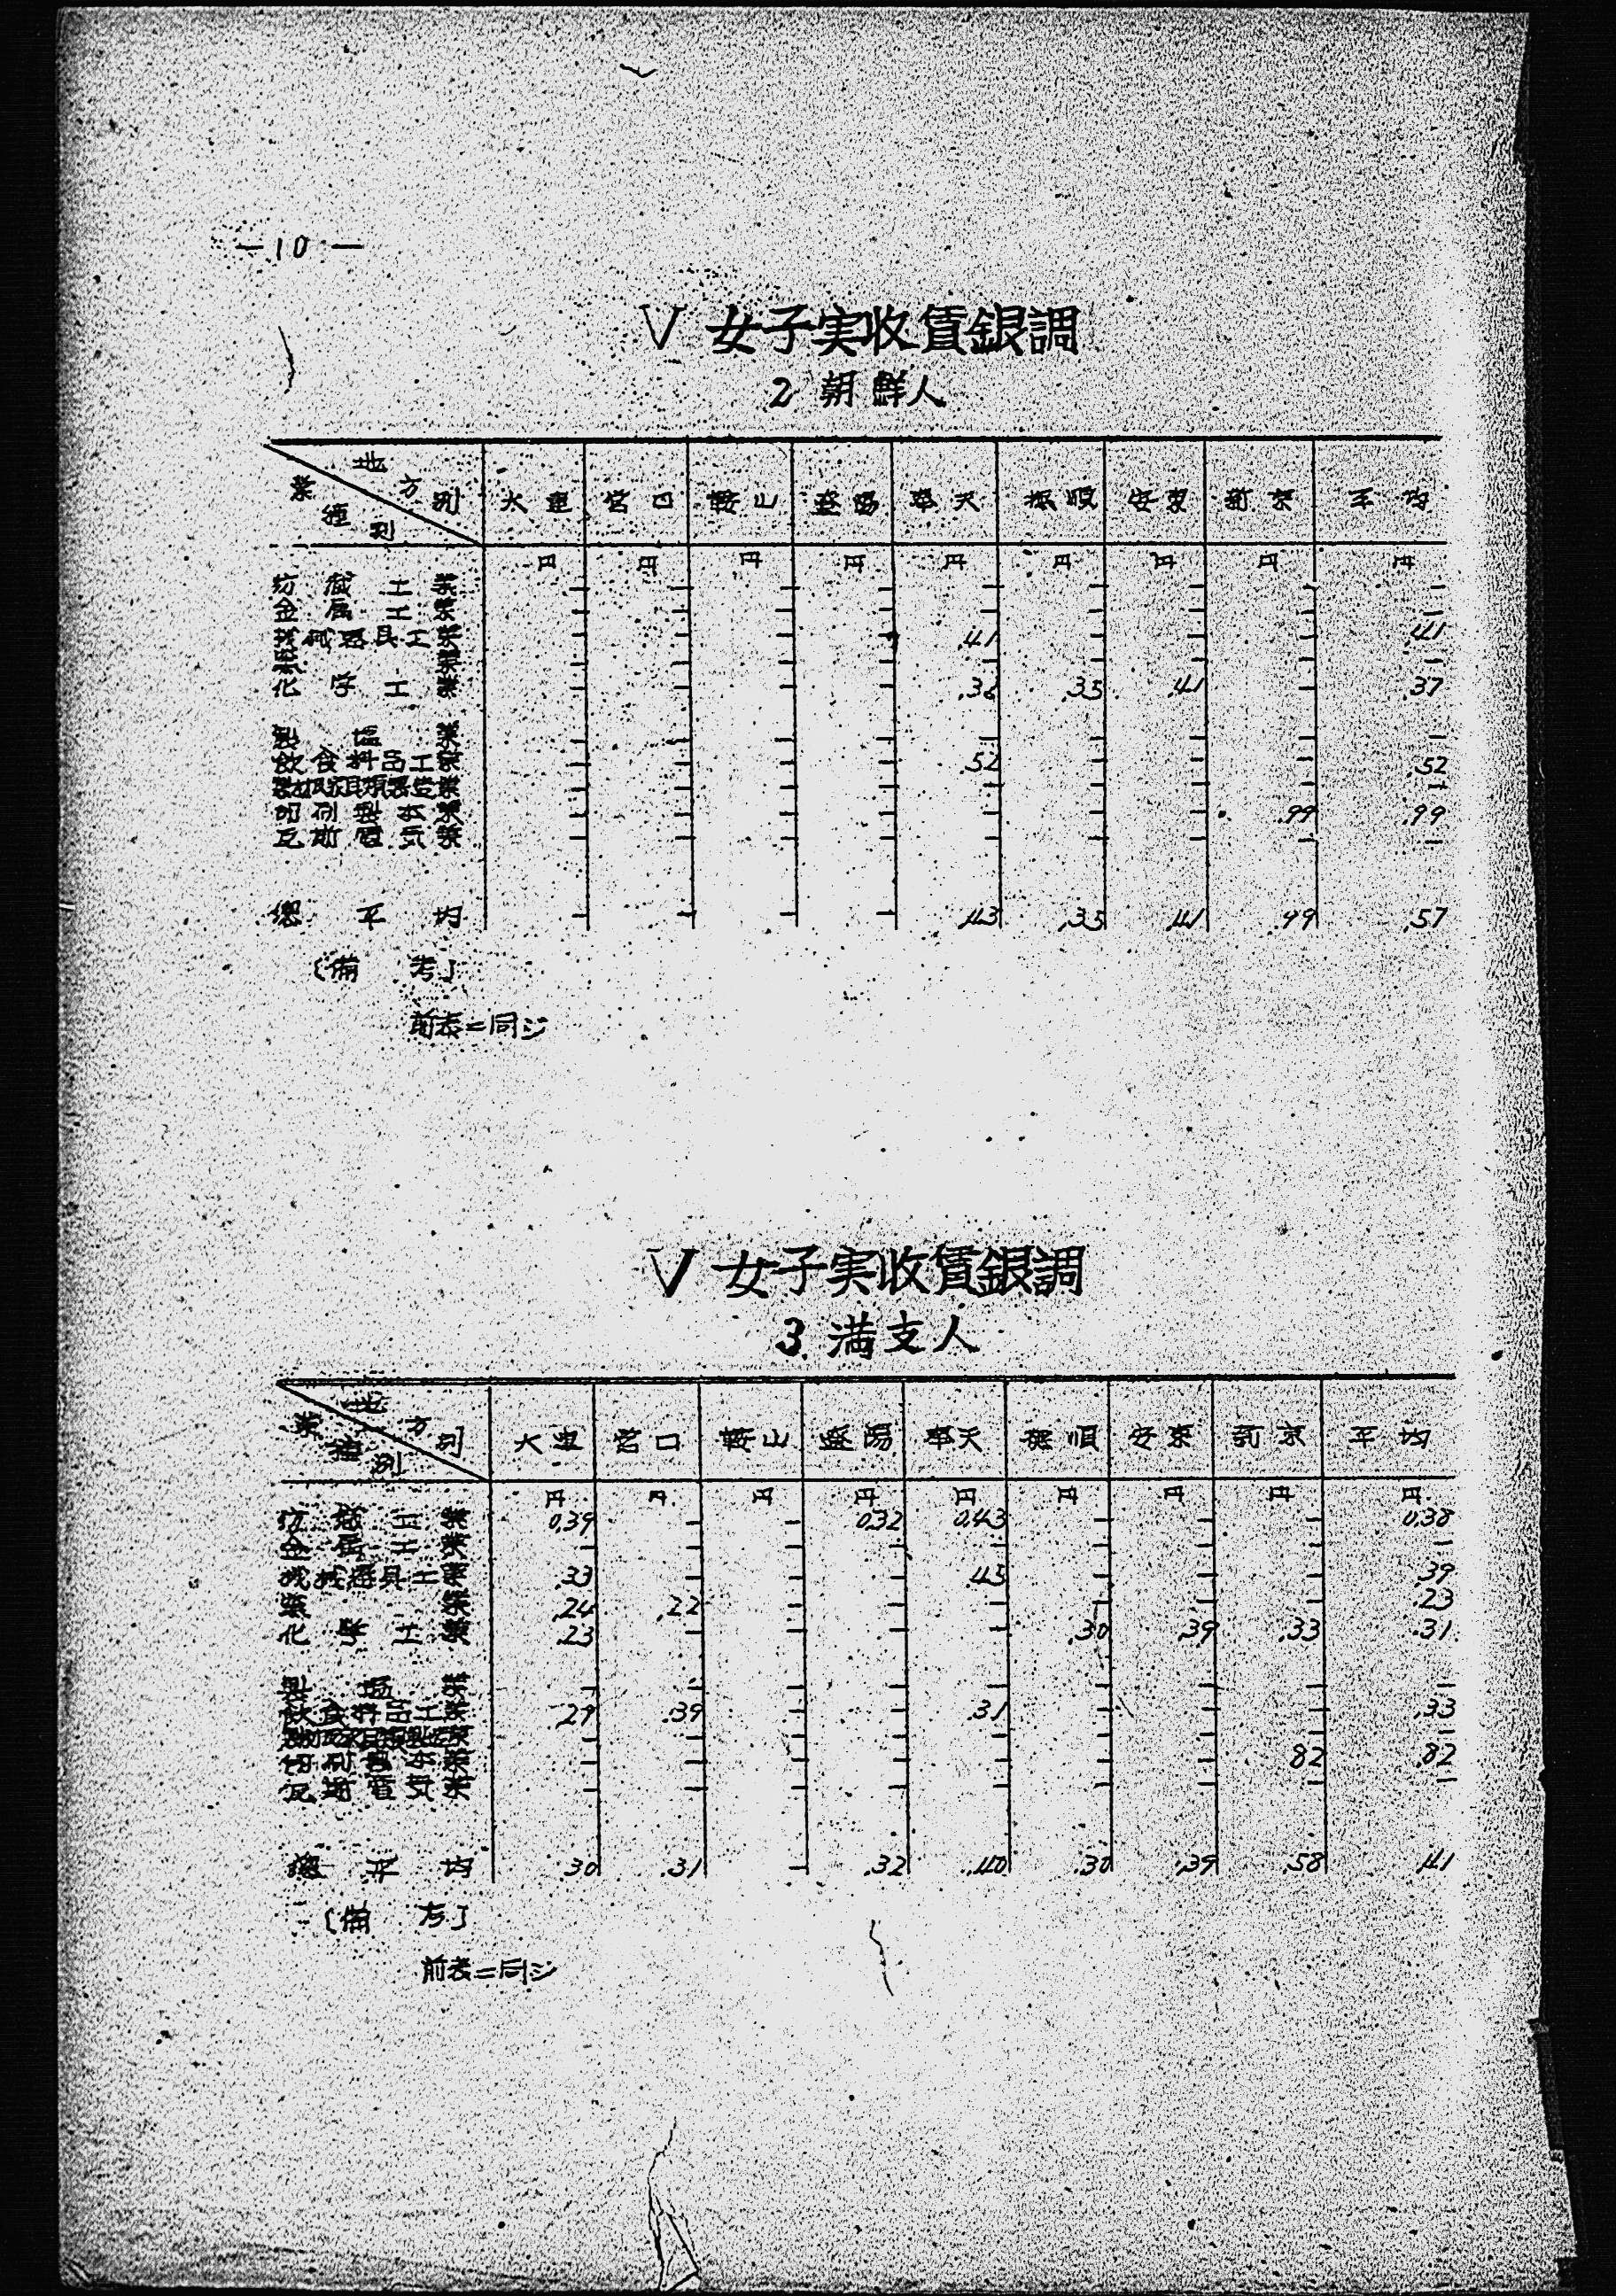 —10—
V 女子実收賃銀調
2 朝鮮人
地方別 業種別 大連 営口 鞍山 遼陽 奉天 撫順 安東 新京 平均
円 円 円 円 円 円 円 円 円
紡織工業 — — — — — — — — —
金属工業 — — — — — — — — —
機械器具工業 — — — — .41 — — — .41
窯業 — — — — — — — — —
化学工業 — — — — .36 .35 .41 — .37
製塩業 — — — — — — — — —
飲食料品工業 — — — — .52 — — — .52
製材及家具類製造業 — — — — — — — — —
印刷製本業 — — — — — — — .99 .99
瓦斯電気業 — — — — — — — — —
総平均 — — — — .43 .35 .41 .99 .57
〔備考〕
前表ニ同ジ
V 女子実收賃銀調
3. 満支人
地方別 業種別 大連 営口 鞍山 遼陽 奉天 撫順 安東 新京 平均
円 円 円 円 円 円 円 円 円
紡織工業 0.39 — — 0.32 0.43 — — — 0.38
金属工業 — — — — — — — — —
機械器具工業 .33 — — — .45 — — — .39
窯業 .24 .22 — — — — — — .23
化学工業 .23 — — — — .30 .39 .33 .31
製塩業 — — — — — — — — —
飲食料品工業 .29 .39 — — .31 — — — .33
製材及家具類製造業 — — — — — — — — —
印刷製本業 — — — — — — — 82 .82
瓦斯電気業 — — — — — — — — —
総平均 .30 .31 — .32 .40 .30 .39 .58 .41
〔備考〕
前表ニ同ジ